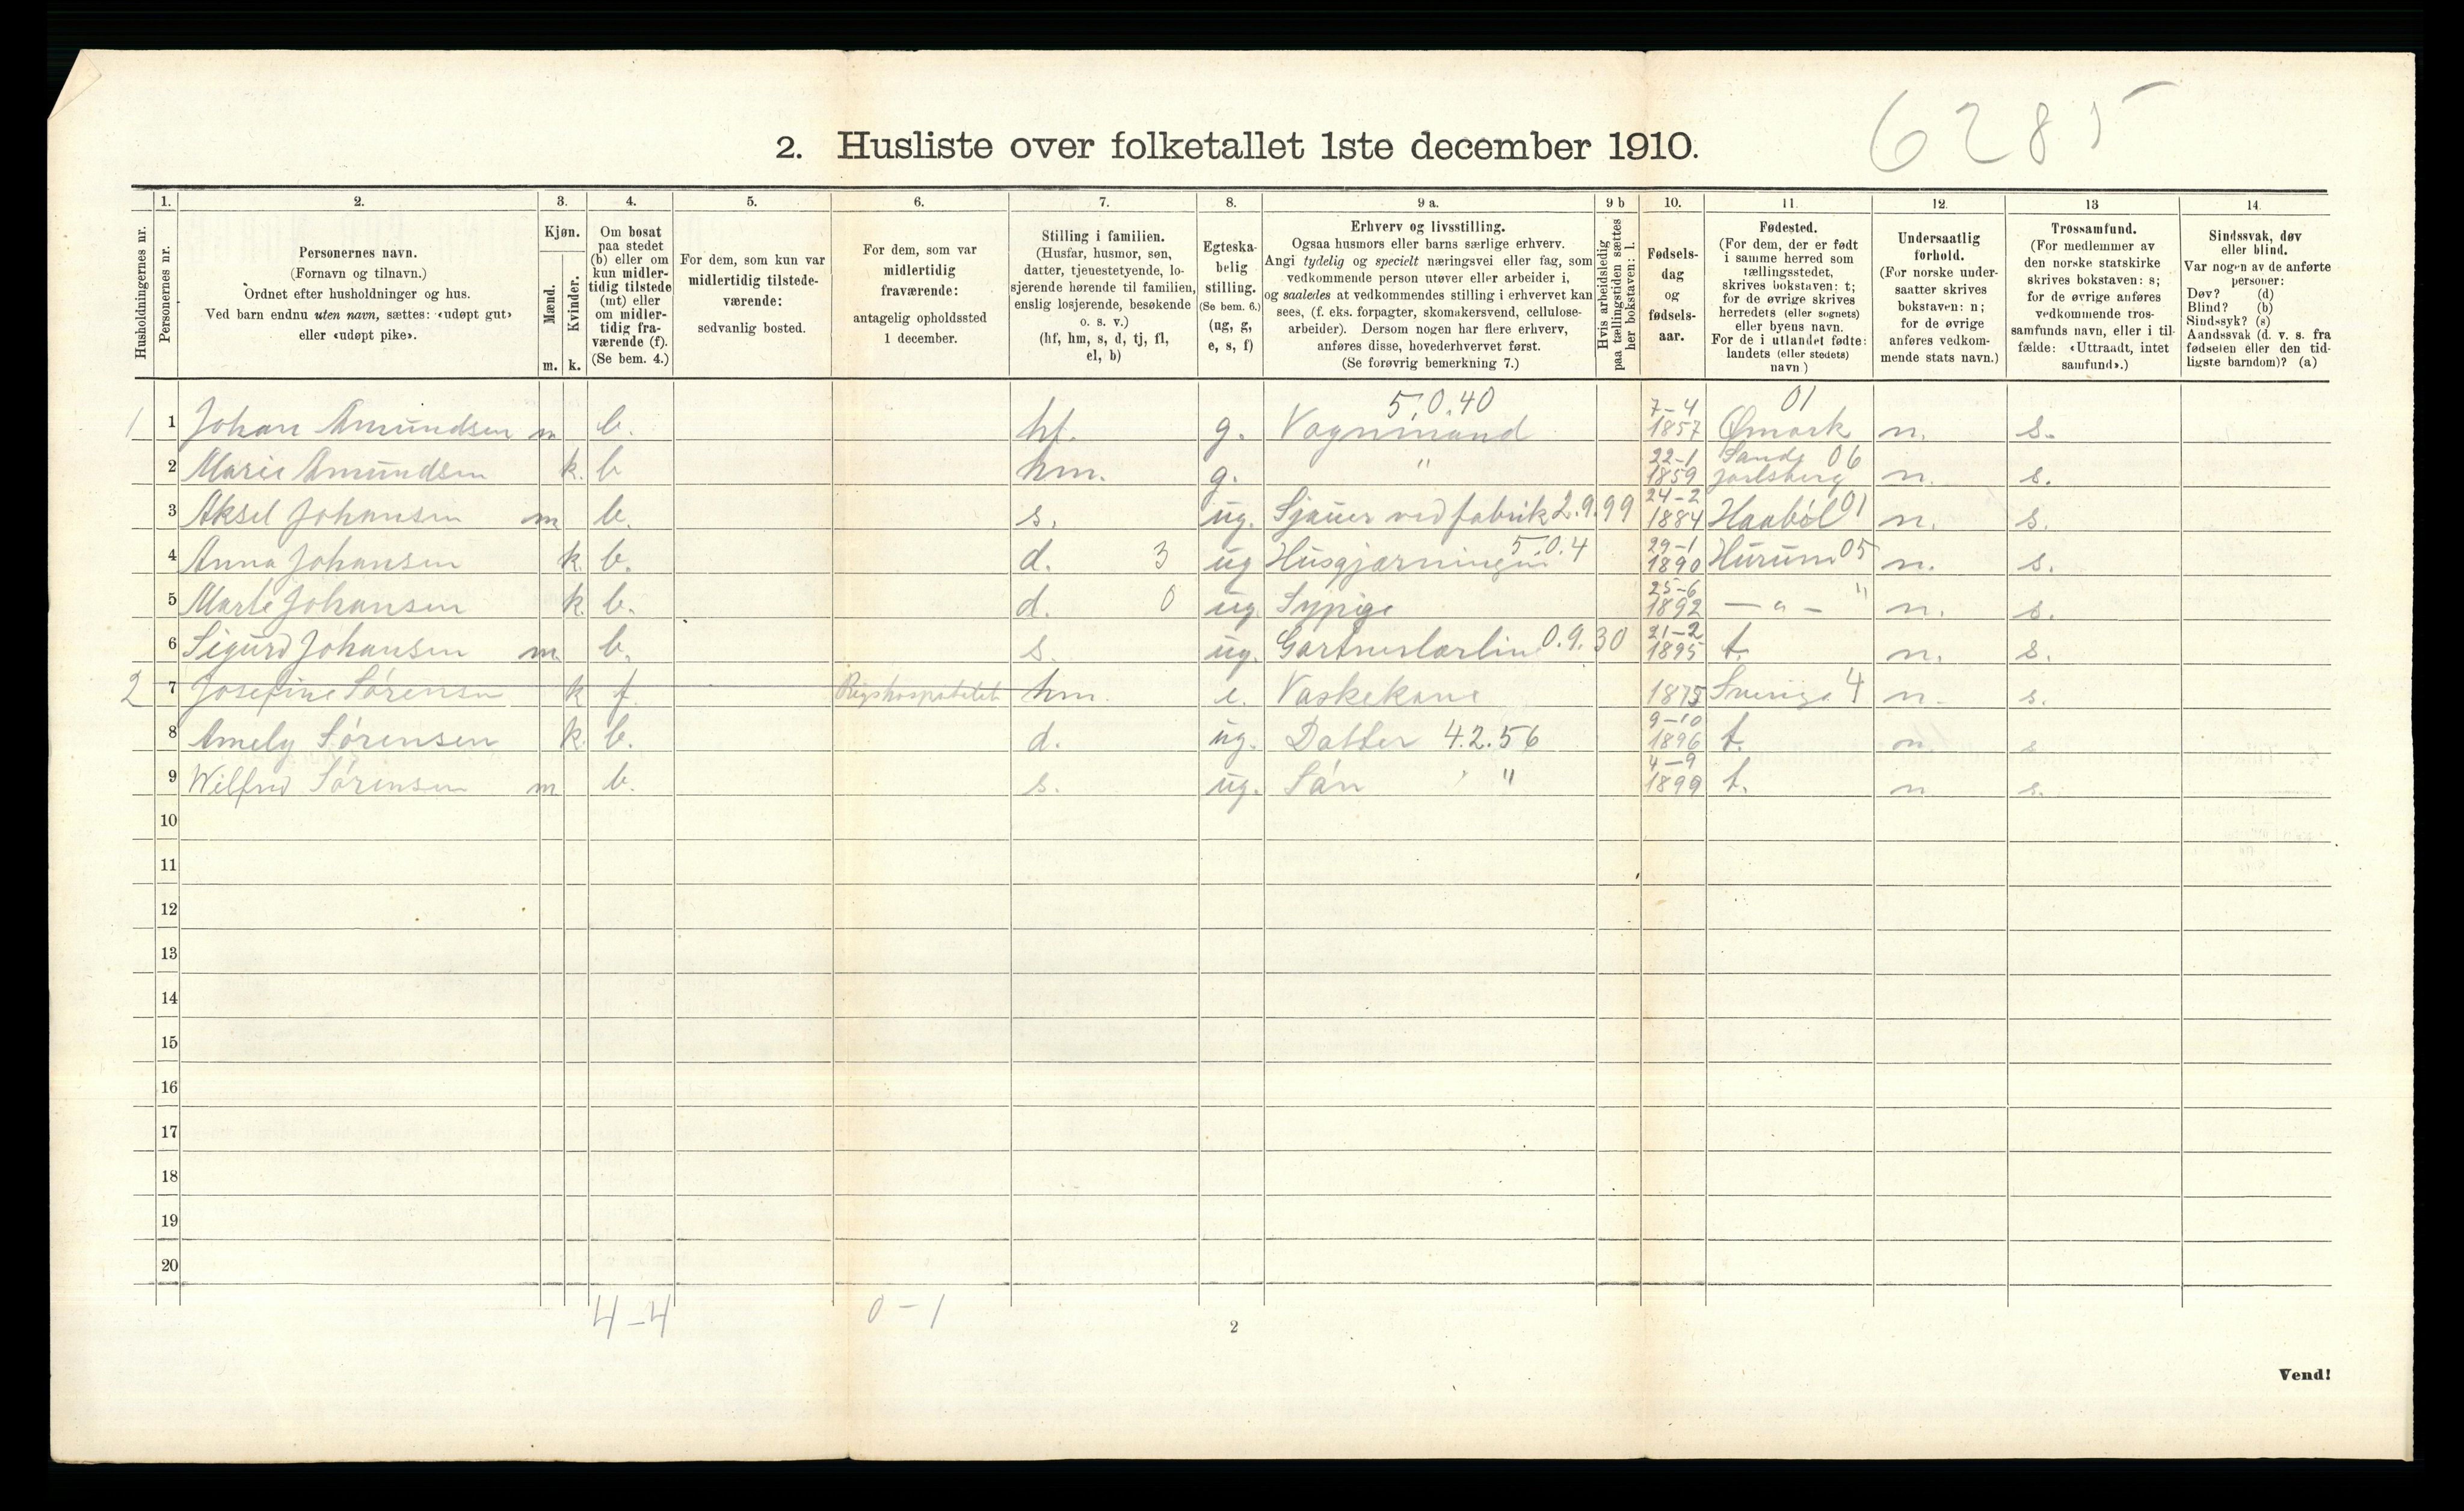 6285
2. Husliste over folketallet 1ste december 1910.
1. 2. 3. 4. 5. 6. 7. 8. 9 a. 9 b 10. 11. 12. 13 14.
Husholdningernes nr.
Personernes nr.
Personernes navn.
(Fornavn og tilnavn.)
Ordnet efter husholdninger og hus.
Ved barn endnu uten navn, sættes: «udøpt gut»
eller «udøpt pike».
Kjøn.
Mænd.
Kvinder.
m. k.
Om bosat
paa stedet
(b) eller om
kun midler-
tidig tilstede
(mt) eller
om midler-
tidig fra-
værende (f).
(Se bem. 4.)
For dem, som kun var
midlertidig tilstede-
værende:
sedvanlig bosted.
For dem, som var
midlertidig
fraværende:
antagelig opholdssted
1 december.
Stilling i familien.
(Husfar, husmor, søn,
datter, tjenestetyende, lo-
sjerende hørende til familien,
enslig losjerende, besøkende
o. s. v.)
(hf, hm, s, d, tj, fl,
el, b)
Egteska-
belig
stilling.
(Se bem. 6.)
(ug, g,
e, s, f)
Erhverv og livsstilling.
Ogsaa husmors eller barns særlige erhverv.
Angi tydelig og specielt næringsvei eller fag, som
vedkommende person utøver eller arbeider i,
og saaledes at vedkommendes stilling i erhvervet kan
sees, (f. eks. forpagter, skomakersvend, cellulose-
arbeider). Dersom nogen har flere erhverv,
anføres disse, hovederhvervet først.
(Se forøvrig bemerkning 7.)
Hvis arbeidsledig
paa tællingstiden sættes
her bokstaven: l.
Fødsels-
dag
og
fødsels-
aar.
Fødested.
(For dem, der er født
i samme herred som
tællingsstedet,
skrives bokstaven: t;
for de øvrige skrives
herredets (eller sognets)
eller byens navn.
For de i utlandet fødte:
landets (eller stedets)
navn.)
Undersaatlig
forhold.
(For norske under-
saatter skrives
bokstaven: n;
for de øvrige
anføres vedkom-
mende stats navn.)
Trossamfund.
(For medlemmer av
den norske statskirke
skrives bokstaven: s;
for de øvrige anføres
vedkommende tros-
samfunds navn, eller i til-
fælde: «Uttraadt, intet
samfund».)
Sindssvak, døv
eller blind.
Var nogen av de anførte
personer:
Døv? (d)
Blind? (b)
Sindssyk? (s)
Aandssvak (d. v. s. fra
fødselen eller den tid-
ligste barndom)? (a)
5.0.40 7-4 01
1 1 Johan Amundsen m b. hf. g. Vognmand 1857 Ømark n. s.
2 Marie Amundsen k. b hm. g. " 22-1 1859 Sande Jarlsberg 06 n. s.
3 Aksel Johansen m b. s. ug. Sjauer ved fabrik 2.9.99 24-2 1884 Haabøl 01 n. s.
4 Anna Johansen k. b. d. 3 ug Husgjærninger 5.0.4 29-1 1890 Hurum 05 n. s.
5 Marte Johansen k. b. d. 0 ug. Sypige 25-6 1892 — " — " n. s.
6 Sigurd Johansen m. b. s. ug. Gartnerlærlin 0.9.30 21-2 1895 t. n. s.
2 7 Josefine Sørensen k f. Rigshospitalet hm. e. Vaskekone 1875 Sverige 4 n. s.
8 Amely Sørensen k. b. d. ug. Datter 4.2.56 9-10 1896 t. n. s
9 Wilfred Sørensen m b. s. ug. Søn " 4-9 1899 t. n s.
10
11
12
13
14
15
16
17
18
19
20
4-4 0-1
2
Vend!